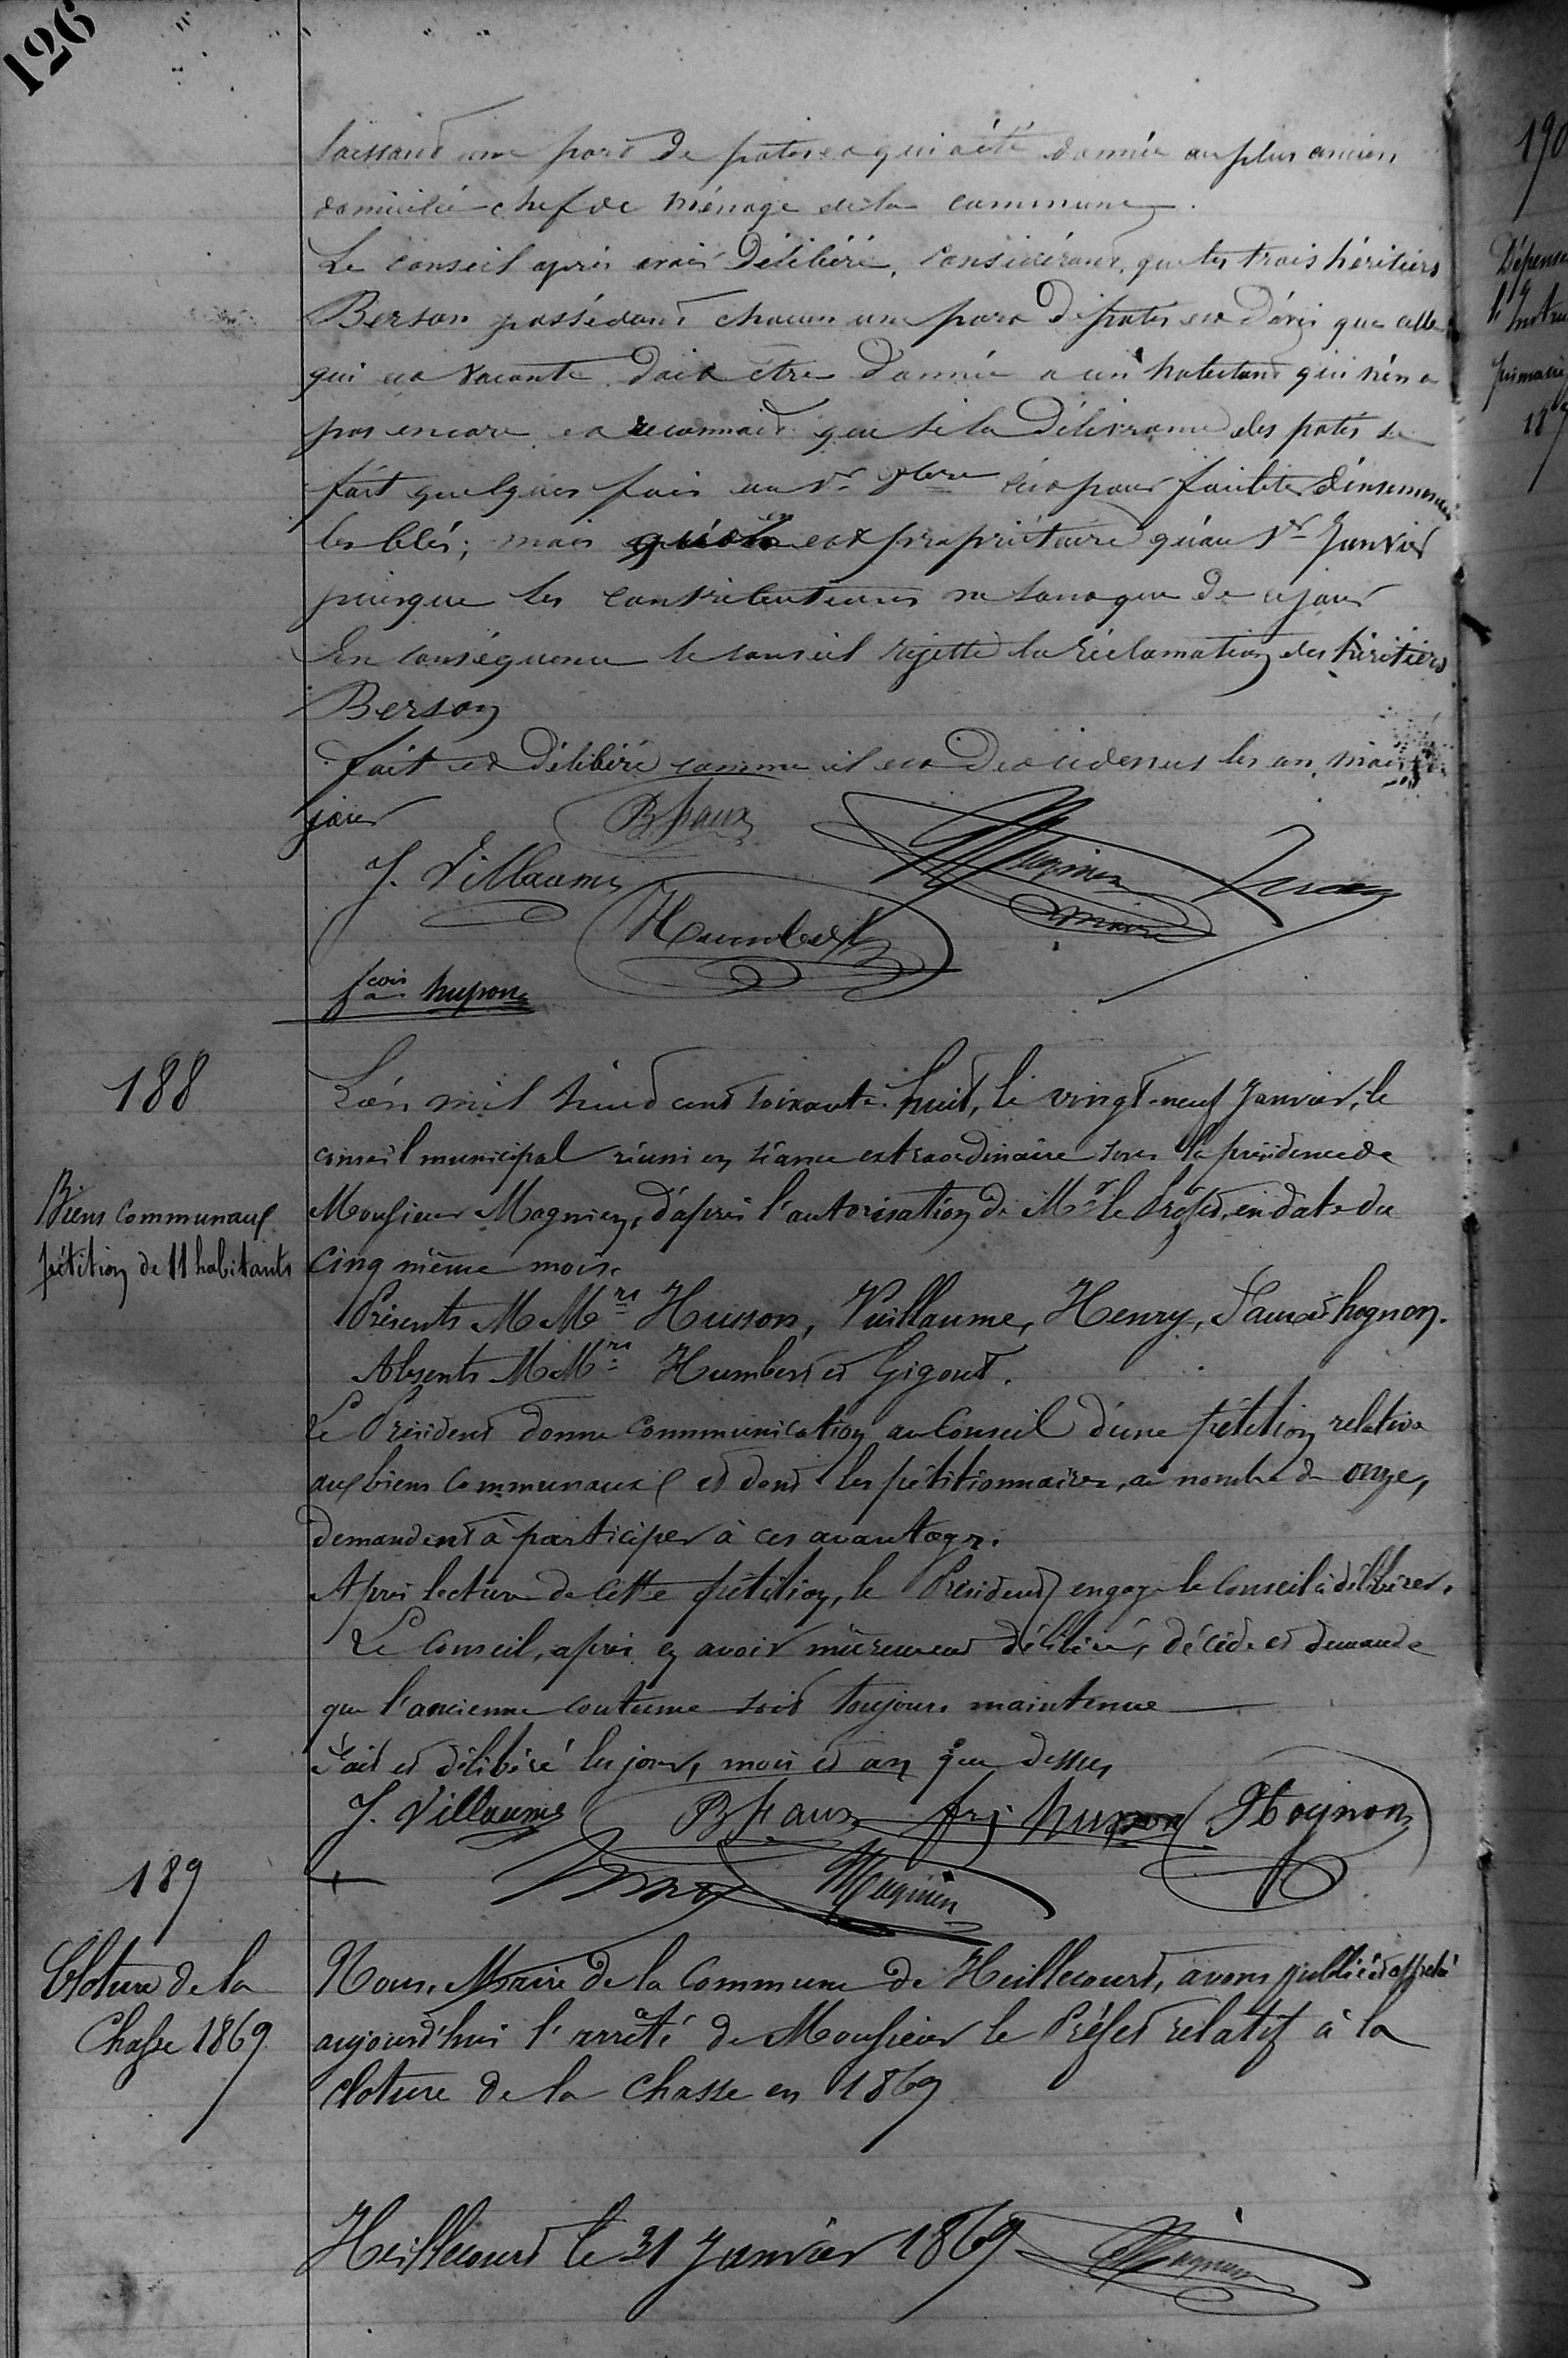 126
laissant une part de patis et qui a été donnée au plus ancien
domicilié chef de ménage de la commune.
Le conseil après avoir délibéré, considérant, que les trois héritiers
Berson possédant chacun une part de patis est d'avis que celle
qui est vacante doit être donnée a un habitant qui n'en a
pas encore et reconnait que si la délivrance des patis se
fait quelques fois au 1er 9bre c'est pour faciliter d'ensemencer
les blés; mais qu'on en est propriétaire qu'au 1er Janvier
puisque les contributions ne sont que de ce jour
En conséquence le conseil rejette la réclamation des héritiers
Berson
fait et délibéré comme il est dessus les an, mois et
jour
BFaux
Magnien
maire
J. Villaume
Humbert
fcois husson
188
Biens communaux
pétition de 11 habitants
L'an mil huit cent soixante-huit, le vingt-neuf Janvier, le
conseil municipal réuni en séance extraordinaire sous la présidence de
Monsieur Magnien, d'après l'autorisation de Mr le Préfet, en date du
cinq même mois.
Présents M Mrs Husson, Vuillaume, Henry, Faux et hognon.
Absents M Mrs Humbert et Gigout.
Le Président donne communication au Conseil d'une pétition relative
aux biens communaux et dont les pétitionnaires, au nombre de onze,
demandent à participer à ces avantages.
Après lecture de cette pétition, le Président engage le Conseil à délibérer.
Le Conseil, après en avoir mûrement délibéré, décide et demande
que l'ancienne coutume soit toujours maintenue
Fait et délibéré les jour, mois et an que dessus
J. Villaume BFaux frs husson Hognon
Magnien
189
Cloture de la
Chasse 1869
Nous, Maire de la Commune de Heillecourt, avons publié et affiché
aujourd'hui l'arrêté de Monsieur le Préfet relatif à la
cloture de la chasse en 1869
Heillecourt le 31 Janvier 1869 Magnien
190
Dépenses
primaire